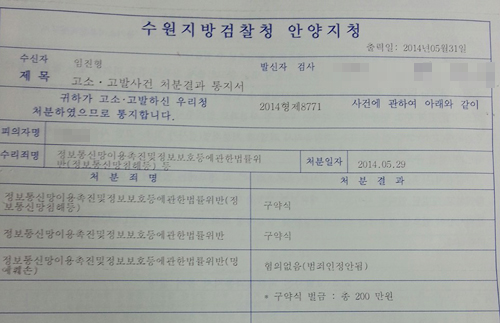 수원지방검찰청 안양지청
출력일: 2014년05월31일
수신자 임진형 발신자 검사
제 목 고소·고발사건 처분결과 통지서
귀하가 고소·고발하신 우리청 2014형제8771 사건에 관하여 아래와 같이
처분하였으므로 통지합니다.
피의자명
수리죄명 정보통신망이용촉진및정보보호등에관한법률위
반(정보통신망침해등) 등 처분일자 2014.05.29
처 분 죄 명 처 분 결 과
정보통신망이용촉진및정보보호등에관한법률위반(정
보통신망침해등) 구약식
정보통신망이용촉진및정보보호등에관한법률위반 구약식
정보통신망이용촉진및정보보호등에관한법률위반(명
예훼손) 혐의없음(범죄인정안됨)
* 구약식 벌금 : 총 200 만원